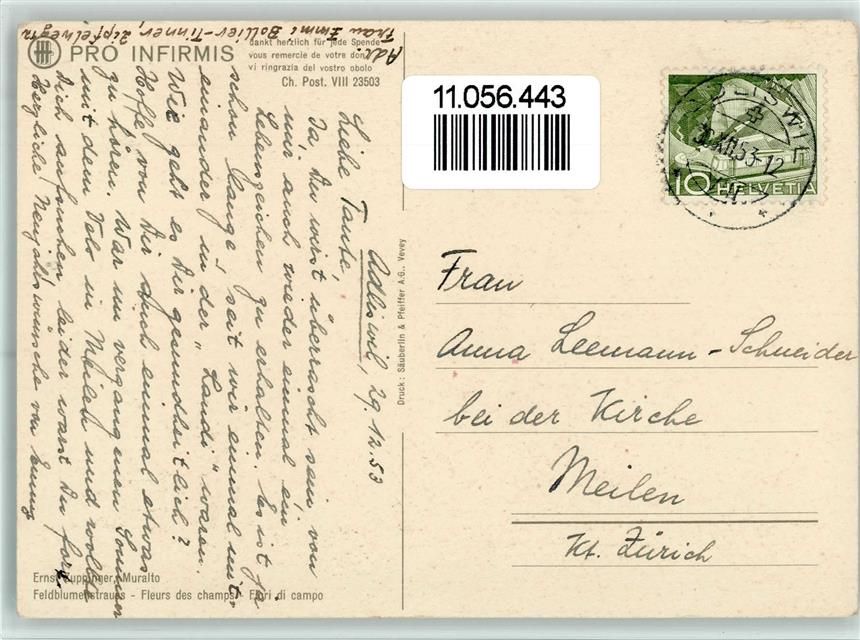 Adr.
Frau Emmi Bollier-Tinner, Zipfelweg
PRO INFIRMIS
dankt herzlich für jede Spende
vous remercie de votre don
vi ringrazia del vostro obolo
Ch. Post. VIII 23503
Adliswil, 29.12.53
Liebe Tante,
Ja Du wirst überrascht sein von
mir auch wieder einmal ein
Lebenszeichen zu erhalten. Es ist ja
schon lange, seit wir einmal mit-
einander in der "Landi" waren.
Wie geht es Dir gesundheitlich?
Hoffe von Dir auch einmal etwas
zu hören. War im vergangenen Sommer
mit dem Velo in Meilen und wollte
Dich aufsuchen leider warst Du fort.
Herzliche Neujahrswünsche von Emmy
Ernst Zuppinger, Muralto
Feldblumenstrauss - Fleurs des champs - Fiori di campo
Druck: Säuberlin & Pfeiffer A.G., Vevey
11.056.443
ADLISWIL
XII.53-12
10 HELVETIA
Frau
Anna Leemann-Schneider
bei der Kirche
Meilen
Kt. Zürich